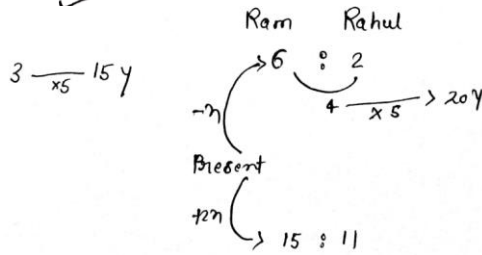 Ram Rahul
3 ×5 15 y
6 : 2
4 × 5 > 20 y
-n
Present
+2n
15 : 11